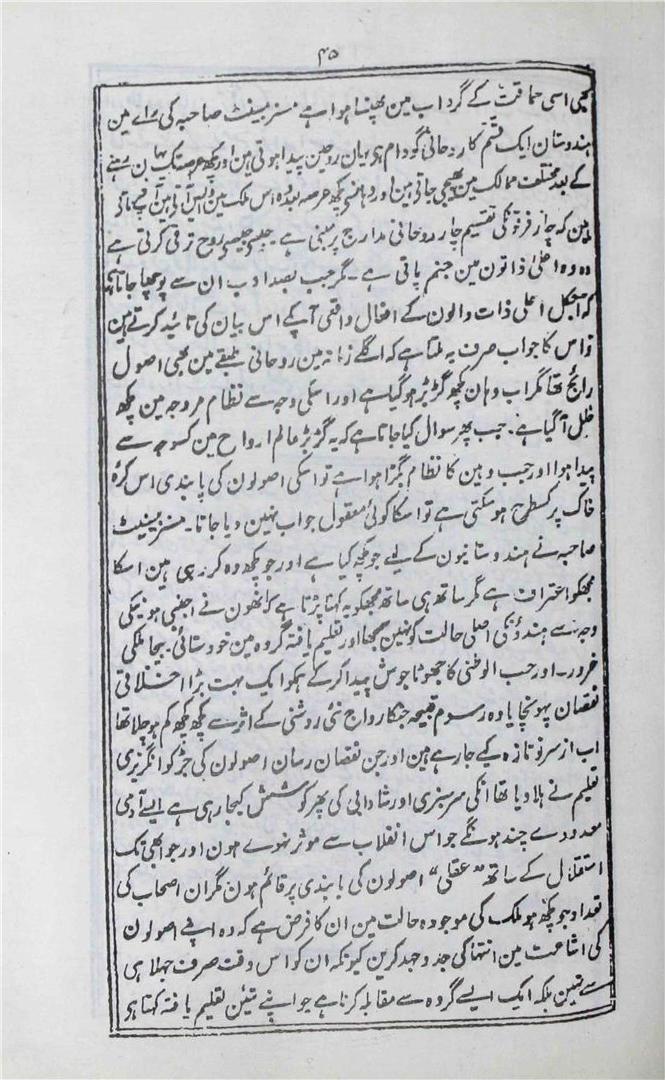 ۴۵
بھی اسی حماقت کے گرداب مین پھنسا ہوا ہے مسز بیسنٹ صاحبہ کی رائے مین
ہندوستان ایک قسم کا روحانی گودام ہی یہان روحین پیدا ہوتی ہین اور کچھ عرصہ تک یہان رہنے
کے بعد مختلف ممالک مین بھیجی جاتی ہین اور وہانسے کچھ عرصہ بعد وہ اس ملک مین واپس آتی ہین آپ فرماتی
ہین کہ چار فرقونکی تقسیم چار روحانی مدارج پر مبنی ہے جیسے جیسے روح ترقی کرتی ہے
وہ وہ اعلیٰ ذاتون مین جنم پاتی ہے۔ مگر جب بصد ادب ان سے پوچھا جاتا ہے
کہ آجکل اعلی ذات والون کے افعال واقعی آپکے اس بیان کی تائید کرتے ہین
تو اس کا جواب صرف یہ ملتا ہے کہ اگلے زمانہ مین روحانی طبقے مین یہی اصول
رائج تھا مگر اب وہان کچھ گڑبڑ ہو گیا ہے اور اسکی وجہ سے نظام مروجہ مین کچھ
خلل آگیا ہے۔ جب پھر سوال کیا جاتا ہے کہ یہ گڑبڑ عالم ارواح مین کسوجہ سے
پیدا ہوا اور جب وہین کا نظام بگڑا ہوا ہے تو اسکی اصولون کی پابندی اس کرۂ
خاک پر کسطرح ہو سکتی ہے تو اسکا کوئی معقول جواب نہین دیا جاتا۔ مسز بیسنٹ
صاحبہ نے ہندوستانیون کے لیے جو کچھ کیا ہے اور جو کچھ وہ کر رہی ہین اسکا
مجھکو اعتراف ہے مگر ساتھ ہی ساتھ مجھکو یہ کہنا پڑتا ہے کہ انھون نے اجنبی ہونیکی
وجہ سے ہندؤنکی اصلی حالت کو نہین سمجھا اور تعلیم یافتہ گروہ مین خود ستائی۔ بیجا ملکی
غرور۔ اور حب الوطنی کا جھوٹا جوش پیدا کر کے ہمکو ایک بہت بڑا اخلاقی
نقصان پہونچایا وہ رسوم قبیحہ جنکا رواج نئی روشنی کے اثر سے کچھ کچھ کم ہو چلا تھا
اب از سر نو تازہ کیے جا رہے ہین اور جن نقصان رسان اصولون کی جڑ کو انگریزی
تعلیم نے ہلا دیا تھا انکی سرسبزی اور شادابی کی پھر کوشش کیجا رہی ہے ایسے آدمی
معدودے چند ہونگے جو اس انقلاب سے موثر نہوے ہون اور جو ابھی تک
استقلال کے ساتھ "عقلی" اصولون کی پابندی پر قائم ہون مگر ان اصحاب کی
تعداد جو کچھ ہو ملک کی موجودہ حالت مین ان کا فرض ہے کہ وہ اپنے اصولون
کی اشاعت مین انتہا کی جد و جہد کرین کیونکہ ان کو اس وقت صرف جہلا ہی
سے نہین بلکہ ایک ایسے گروہ سے مقابلہ کرنا ہے جو اپنے تئین تعلیم یافتہ کہتا ہو